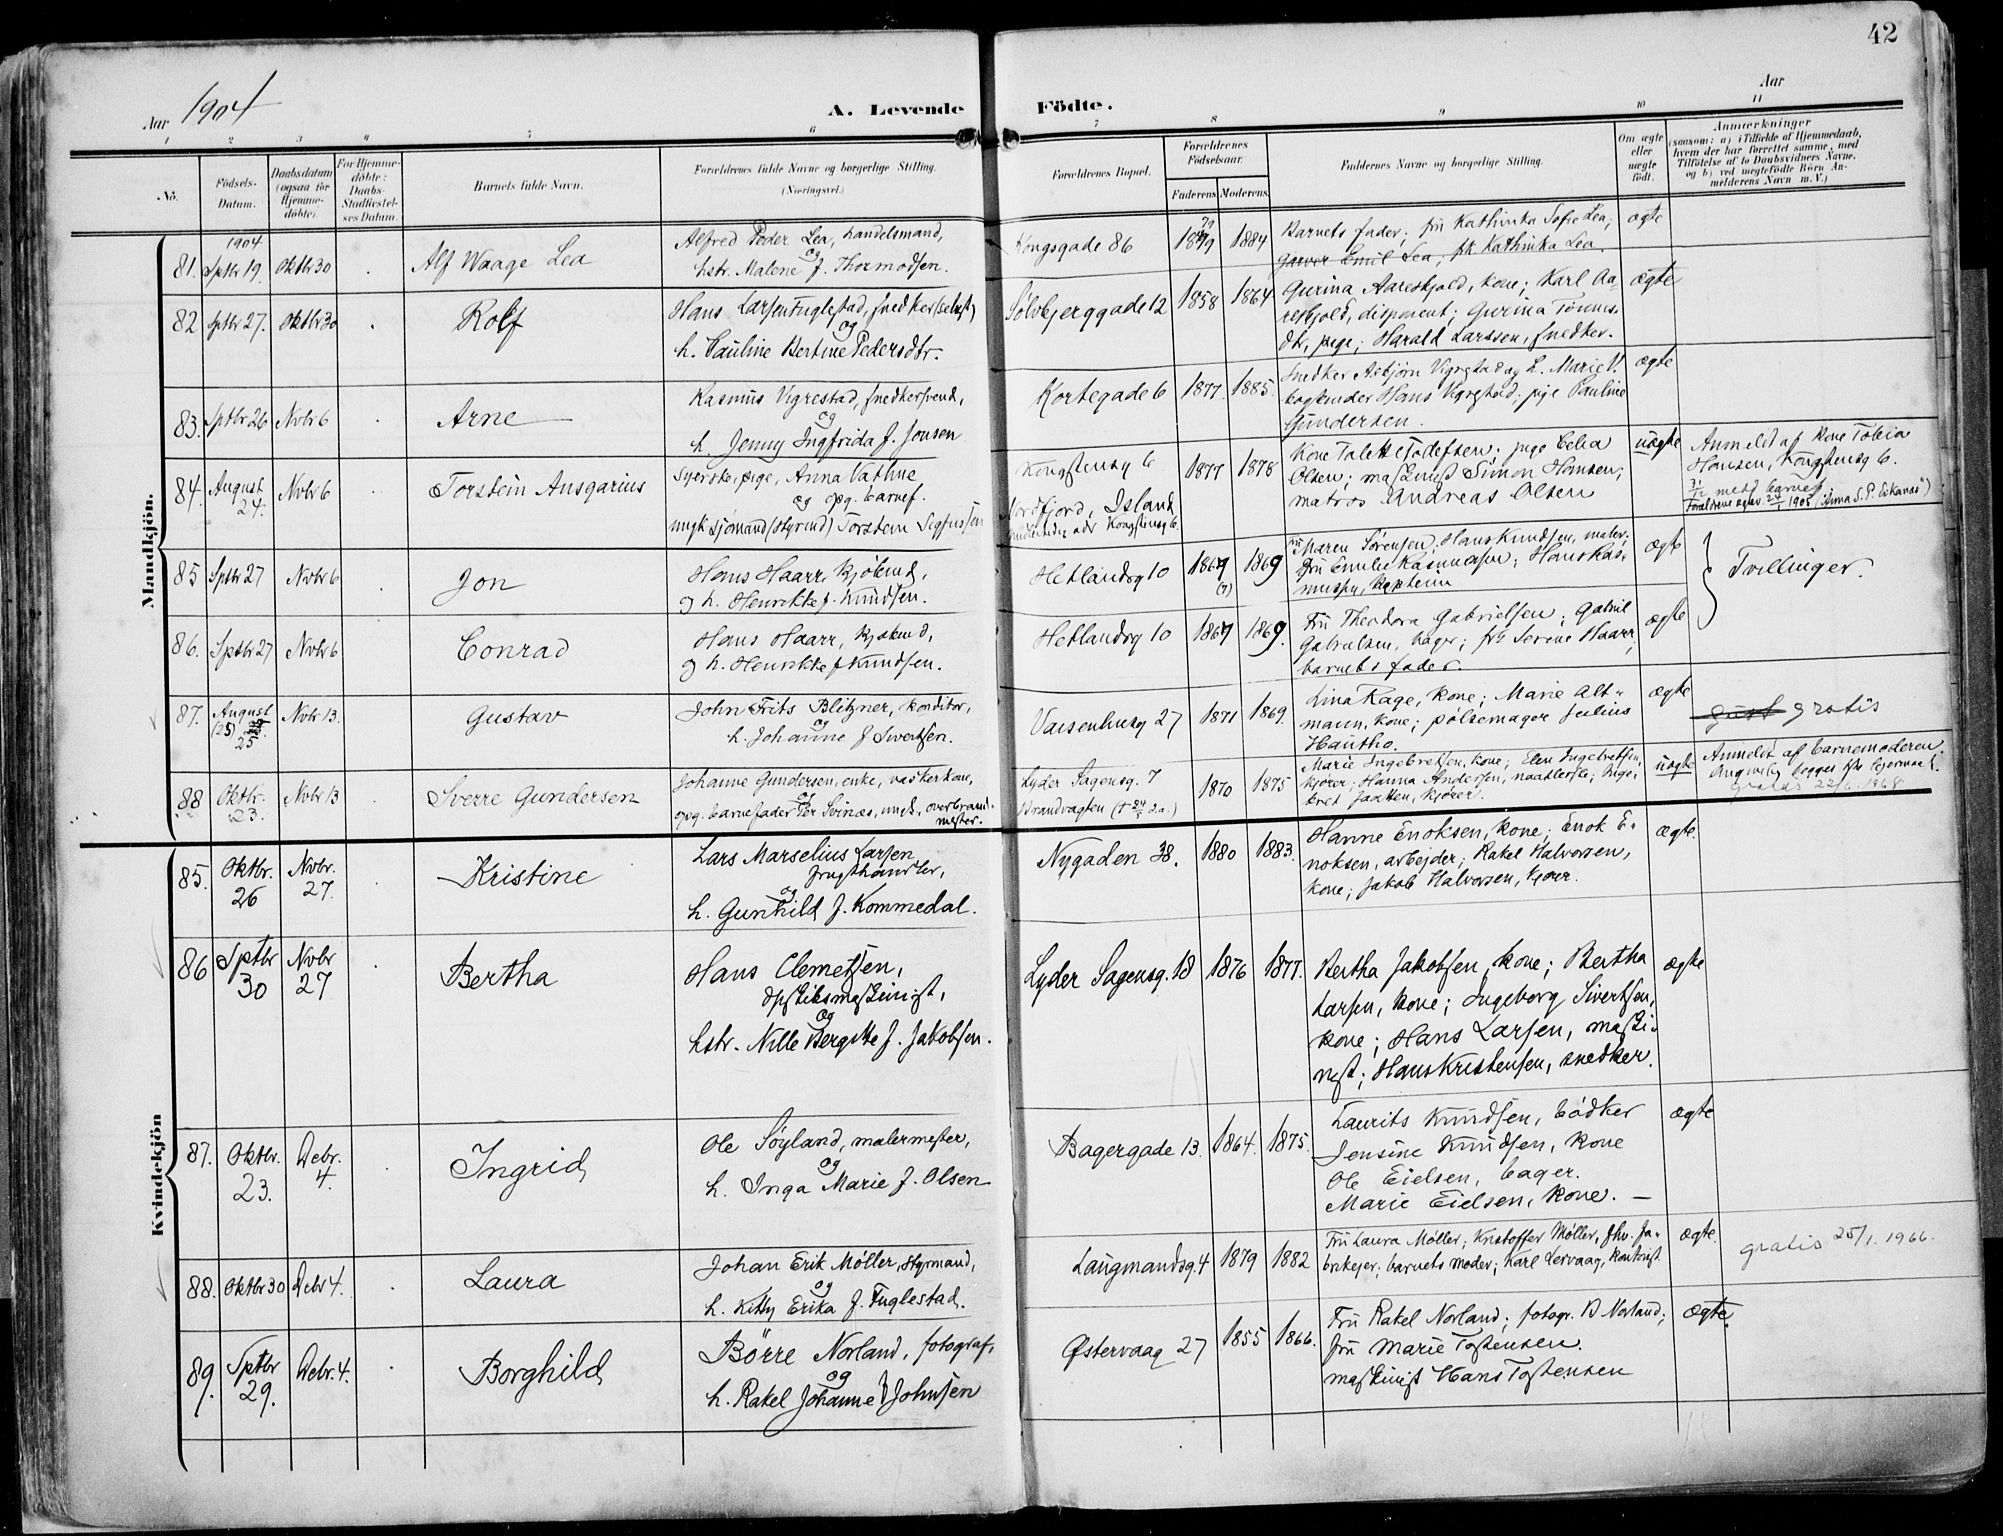 42
Aar 1904
A. Levende Födte.
Aar
1 2 3 4 5 6 7 8 9 10 11
No.
Födsels-Datum.
Daabsdatum (ogsaa for Hjemme-døbte).
For Hjemme-døbte: Daabs-Stadfæstel-ses Datum.
Barnets fulde Navn.
Forældrenes fulde Navne og borgerlige Stilling. (Næringsvei.)
Forældrenes Bopæl.
Forældrenes Födselsaar.
Faderens. Moderens.
Faddernes Navne og borgerlige Stilling.
Om ægte eller uægte født.
Anmærkninger
(saasom: a) i Tilfælde af Hjemmedaab,
hvem der har forrettet samme, med
Tilföielse af to Daabsvidners Navne.
og b) ved uægtefödte Börn An-
melderens Navn m. V.)
Mandkjön.
81. 1904 Sptbr 19. Oktbr 30 Alf Waage Lea
Alfred Peder Lea, handelsmand,
og
hstr. Malene f. Thormodsen.
Kongsgade 86 1879 1884
Barnets fader; fru Kathinka Sofie Lea;
garver Emil Lea; frk. Kathinka Lea.
ægte
82 Sptbr 27. Oktbr 30 Rolf
Hans Larsen Fuglestad, snedker(selvst)
og
h. Pauline Bertine Pedersdtr.
Sølvbjerggade 12 1858 1864
Gurina Aareskjold, kone; Karl Aa-
reskjold, disponent; Gurina Tønnes-
dtr, pige; Harald Larssen, snedker.
ægte
83. Sptbr 26 Nvbr 6 Arne
Rasmus Vigrestad, snedkersvend,
og
h. Jenny Ingfrida f. Jonsen
Kortegade 6 1877 1885.
Snedker Asbjørn Vigrestad og h. Marie V.
Hans Vigrestad; pige Pauline
Gundersen.
ægte
84. August 24. Nvbr 6 Torstein Ansgarius
Syerske, pige, Anna Vathne
og opg. barnef.
ungk. sjømand (styrmd) Torstein Sigfussen
Kongstensg 6
Nordfjord, Island
Kongstensg 6.
1877 1878
Kone Talette Tollefsen; pige Celia
Olsen; maskinist Simon Hansen;
matros Andreas Olsen
uægte
Anmeldt af kone Tobia
Hansen, Kongstensg 6.
85 Sptbr 27 Nvbr 6 Jon
Hans Haarr, kjøbmd,
og h. Henrikke f. Knudsen.
Hetlandsg 10 1867 (7) 1869
fru Maren Sørensen; Hans Knudsen, maler;
fru Emilie Rasmussen; Hans Ras-
mussen, kaptein
ægte
Tvillinger.
86. Sptbr 27 Nvbr 6 Conrad
Hans Haarr, kjøbmd,
og h. Henrikke f Knudsen.
Hetlandsg 10 1867 1869.
Fru Theodora Gabrielsen; Gabriel
Gabrielsen, bager; frk Serine Haarr,
barnets fader.
ægte
87. August (25) 25 Nvbr 13. Gustav
John Frits Blitzner, konditor,
og
h. Johanne f Sivertsen.
Vaisenhusg 27 1871 1869.
Lina Rage, kone; Marie Alt-
mann, kone; pølsemager Julius
Hautho.
ægte
gratis
88 Oktbr. 23. Nvbr 13 Sverre Gundersen
Johanne Gundersen, enke, vaskerkone,
og
opg. barnefader Per Svinæs, ungk., overbrand-
mester.
Lyder Sagensg. 7
Brandvagten
1870 1875
Marie Ingebretsen, kone; Elen Ingebretsen,
kjører; Hanna Andersen, Inge-
bret Jaatten, kjører.
uægte
Anmeldt af barnemoderen.
gratis 22/6. 1968
Kvindekjön
85. Oktbr. 26 Nvbr. 27. Kristine
Lars Marselius Larsen
frugthandler,
og
h. Gunhild f. Kommedal.
Nygaden 38. 1880 1883.
Hanne Enoksen, kone; Enok E-
noksen, arbejder; Rakel Halvorsen,
kone; Jakob Halvorsen, kjører.
ægte
86 Sptbr 30 Nvbr 27 Bertha
Hans Clemetsen,
dpskibsmaskinist,
og
hstr. Nille Bergitte f. Jakobsen.
Lyder Sagensg. 18 1876 1877.
Bertha Jakobsen, kone; Bertha
Larsen, kone; Ingeborg Sivertsen,
kone; Hans Larsen, maski-
nist; Hans Kristensen, snedker.
ægte
87. Oktbr. 23. Debr. 4. Ingrid
Ole Søyland, malermester,
og
h. Inga Marie f. Olsen
Bagergade 13. 1864. 1875.
Laurits Knudsen, bødker
Jensine Knudsen, kone
Ole Eielsen, bager.
Marie Eielsen, kone. —
ægte
88. Oktbr 30 Debr 4. Laura
Johan Erik Møller, styrmand,
og
h. Kitty Erika f. Fuglestad.
Langmandsg. 4 1879 1882
Fru Laura Møller; Kristoffer Møller, fhv. fa-
brikejer; barnets moder; Karl Lervaag, kontorist
ægte.
gratis 25/1. 1966.
89. Sptbr 29. Debr. 4. Borghild
Börre Norland, fotograf,
og
h. Rakel Johanne f Johnsen
Østervaag 27 1855 1866.
Fru Rakel Norland; fotogr. B Norland;
fru Marie Tostensen.
maskinist Hans Tostensen
ægte.